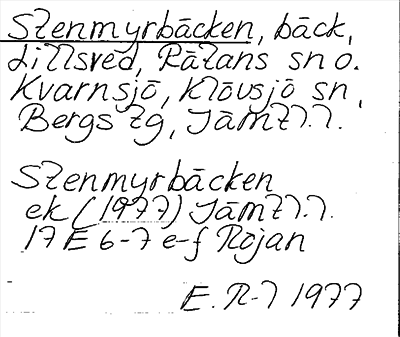 Stenmyrbäcken, bäck,
Lillsved, Rätans sn o.
Kvarnsjö, Klövsjö sn,
Bergs tg, Jämtl.l.
Stenmyrbäcken
ek (1977) Jämtl.l.
17 E 6-7 e-f Röjan
E. R-l 1977